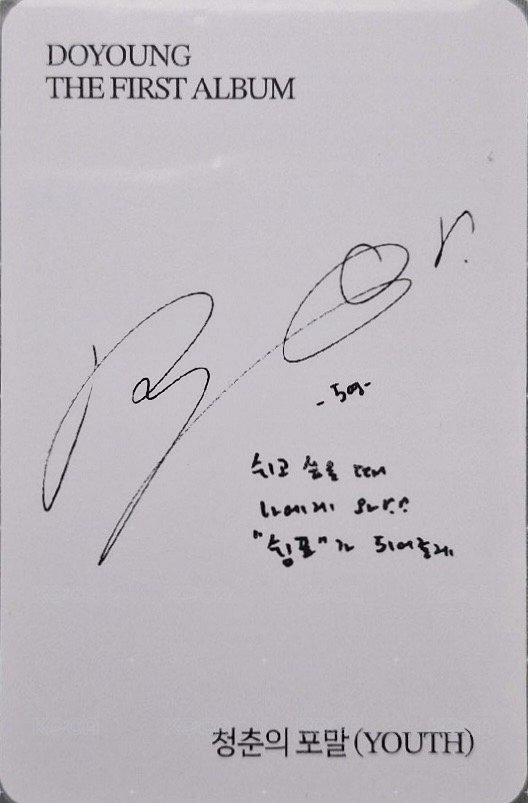 DOYOUNG
THE FIRST ALBUM
-도영-
쉬고 싶을 때
나에게 와!!
"쉼표"가 되어줄게
청춘의 포말 (YOUTH)